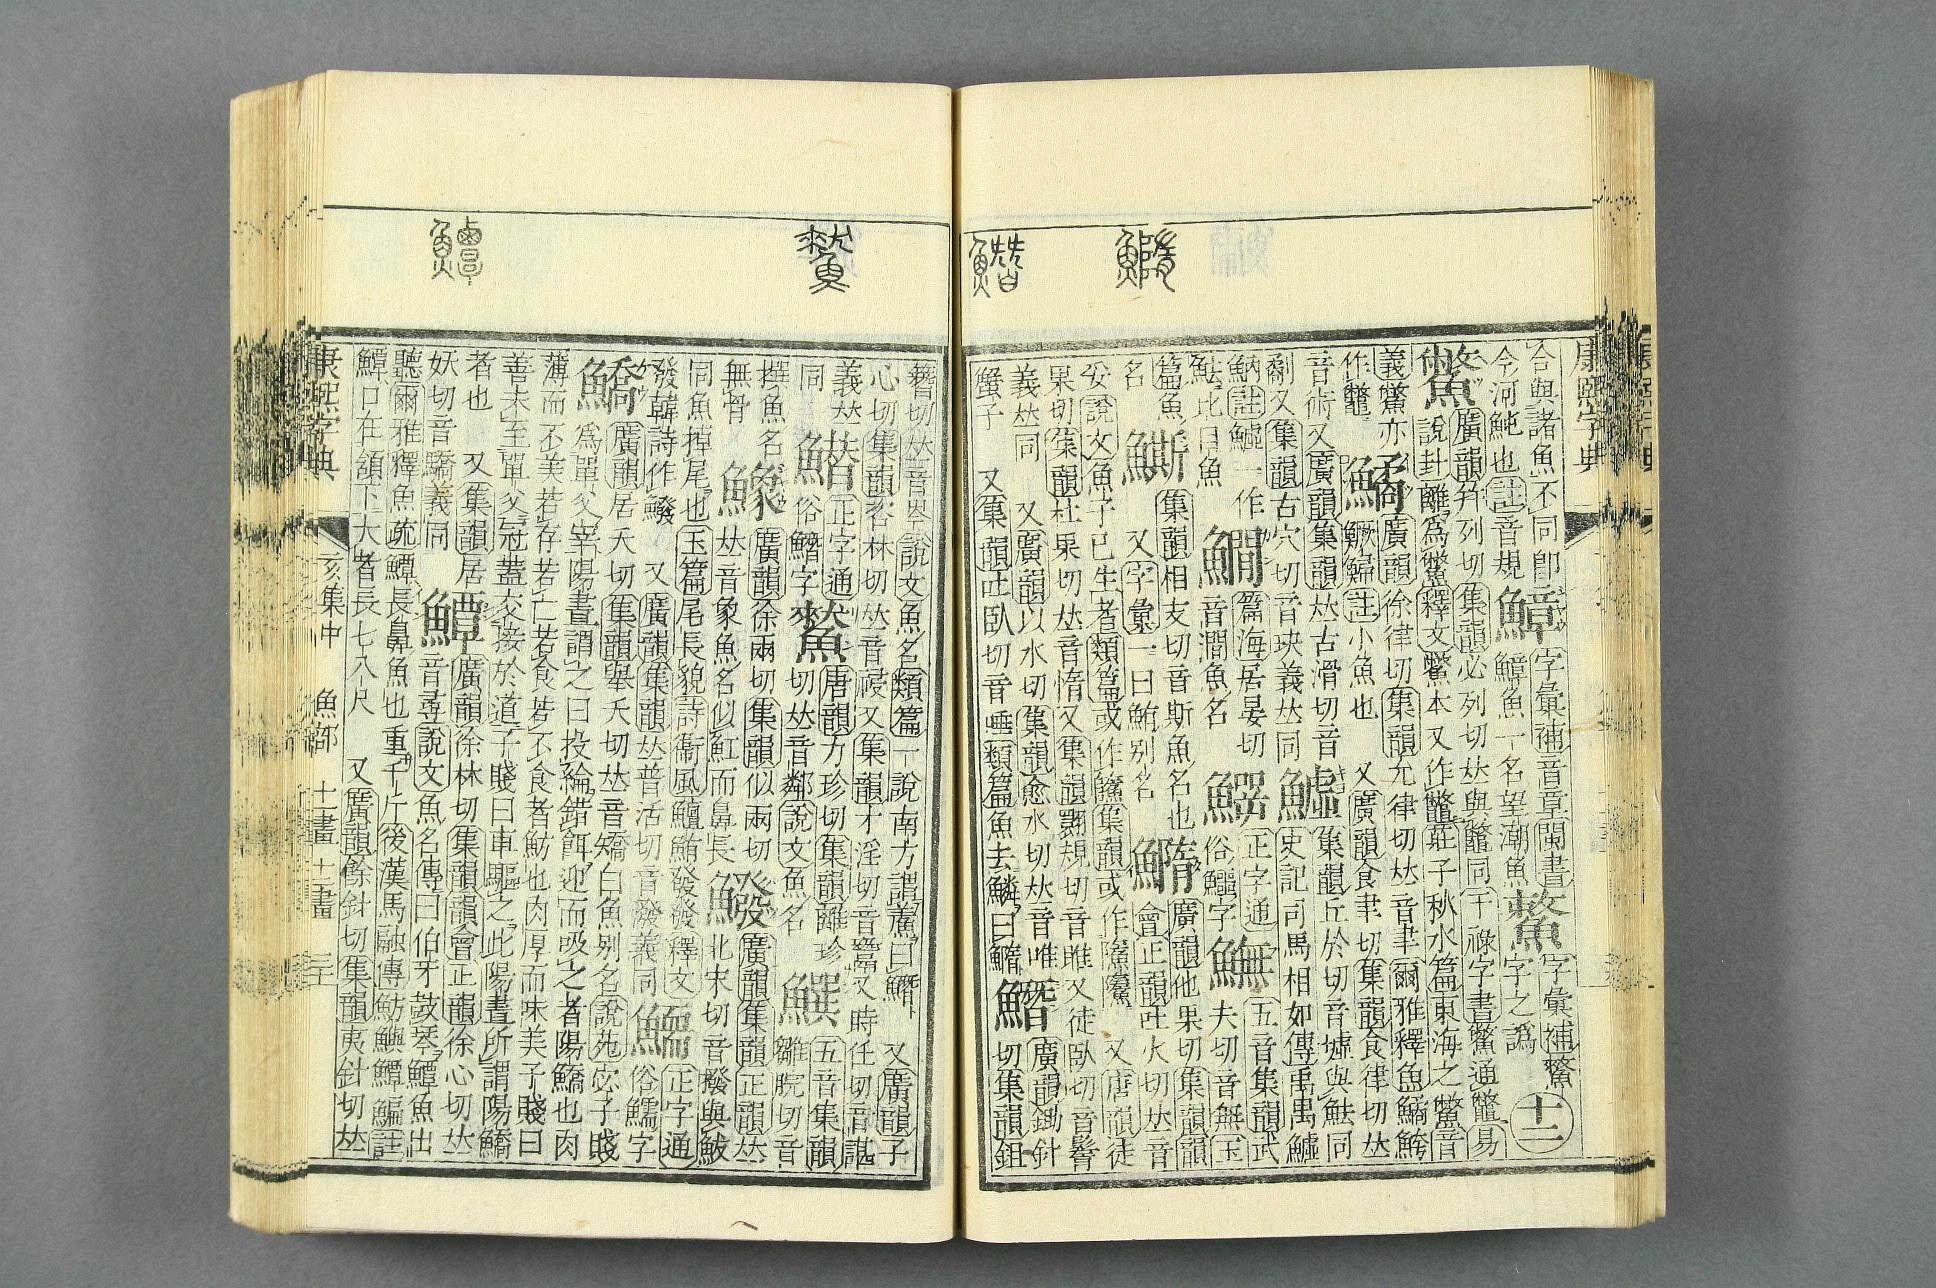 合與諸魚不同卽
今河魨也註音規
鱆字彙補音章閩書
鱆魚一名望潮魚
字彙補鰲字之譌
十二
鷩廣韻幷列切集韻必列切𠀤與鼈同干祿字書鷩通鼈易
說卦離爲鱉釋文鱉本又作鼈莊子秋水篇東海之鱉音
義鱉亦作鼈
鱊廣韻徐律切集韻允律切𠀤音聿爾雅釋魚鱊鮬
鱖鯞註小魚也 又廣韻食聿切集韻食律切𠀤
音術又廣韻集韻𠀤古滑切音
劀又集韻古穴切音玦義𠀤同
魖集韻丘於切音墟與魼同
史記司馬相如傳禺禺魖
魶註魖一作
魼比目魚
鐗篇海居晏切
音澗魚名
正字通
俗鱷字
五音集韻武
夫切音無玉
篇魚
名
集韻相支切音斯魚名也
又字彙一曰鮪別名
鰖廣韻他果切集韻韻
會正韻吐火切𠀤音
妥說文魚子已生者類篇或作集韻或作 又唐韻徒
果切集韻杜果切𠀤音惰又集韻翾規切音睢又徒臥切音鬌
義𠀤同 又廣韻以水切集韻愈水切𠀤音唯
蟹子 又集韻吐臥切音唾類篇魚去鱗曰鰖
廣韻鋤針
切集韻鉏
簪切𠀤音岑說文魚名類篇一說南方謂䱹曰 又廣韻子
心切集韻咨林切𠀤音祲又集韻才淫切音又時任切音諶
義𠀤
同
正字通
俗字
唐韻力珍切集韻離珍
切𠀤音鄰說文魚名
五音集韻
雛脘切音
撰魚名
無骨
廣韻徐兩切集韻似兩切
𠀤音象魚名似魟而鼻長
廣韻集韻正韻𠀤
北末切音撥與鮁
同魚掉尾也玉篇尾長貌詩衞風鱣鮪發發釋文
發韓詩作鱍 又廣韻集韻𠀤普活切音潑義同
鱬正字通
俗鱬字
鱎廣韻居夭切集韻舉夭切𠀤音矯白魚別名說苑宓子賤
爲單父宰陽晝謂之曰投綸錯餌迎而吸之者陽鱎也肉
薄而不美若存若亡若食若不食者魴也肉厚而味美子賤曰
善未至單父冠蓋交接於道子賤曰車驅之此陽晝所謂陽鱎
者也 又集韻居
妖切音驕義同
鱏廣韻徐林切集韻韻會正韻徐心切𠀤
音尋說文魚名傳曰伯牙鼓琴鱏魚出
聽爾雅釋魚疏鱏長鼻魚也重千斤後漢馬融傳魴鱮鱏鯿註
鱏口在頷下大者長七八尺 又廣韻餘針切集韻夷針切𠀤
康熙字典
亥集中 魚部 十一畫 十二畫
康熙字典